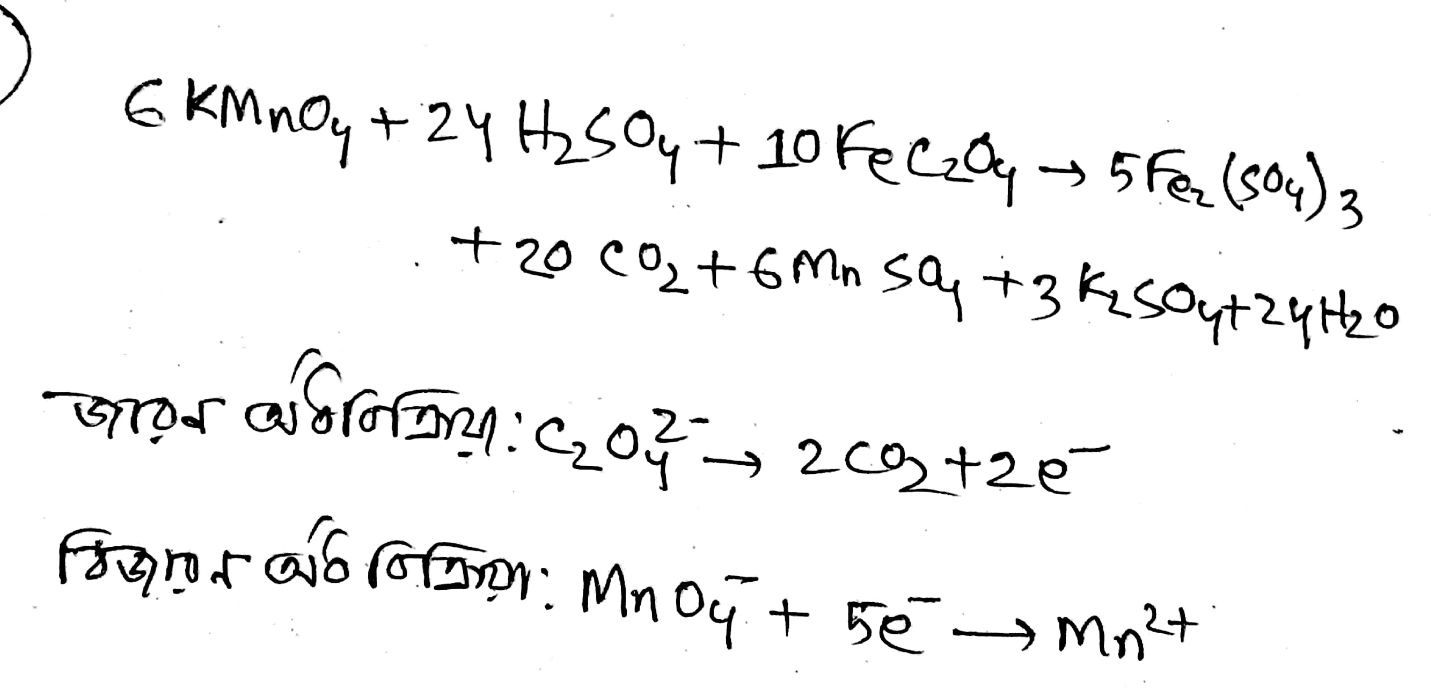 6 KMnO₄ + 24 H₂SO₄ + 10 FeC₂O₄ → 5Fe₂(SO₄)₃
+ 20 CO₂ + 6 MnSO₄ + 3 K₂SO₄ + 24 H₂O
জারন অর্ধবিক্রিয়া: C₂O₄²⁻ → 2CO₂ + 2e⁻
বিজারন অর্ধবিক্রিয়া: MnO₄⁻ + 5e⁻ → Mn²⁺